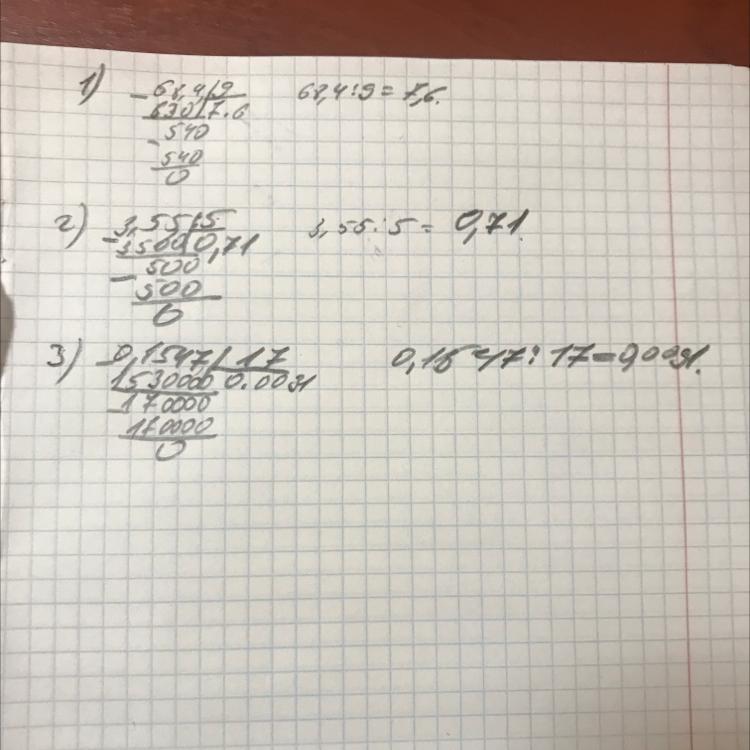 1) - 68,4 | 9   68,4 : 9 = 7,6.
630 | 7.6
- 540
540
0
2) - 3,55 | 5   3,55 : 5 = 0,71.
3500 | 0,71
- 500
500
0
3) - 0,1547 | 17   0,1547 : 17 = 0,0091.
1530000 0.0091
- 170000
170000
0